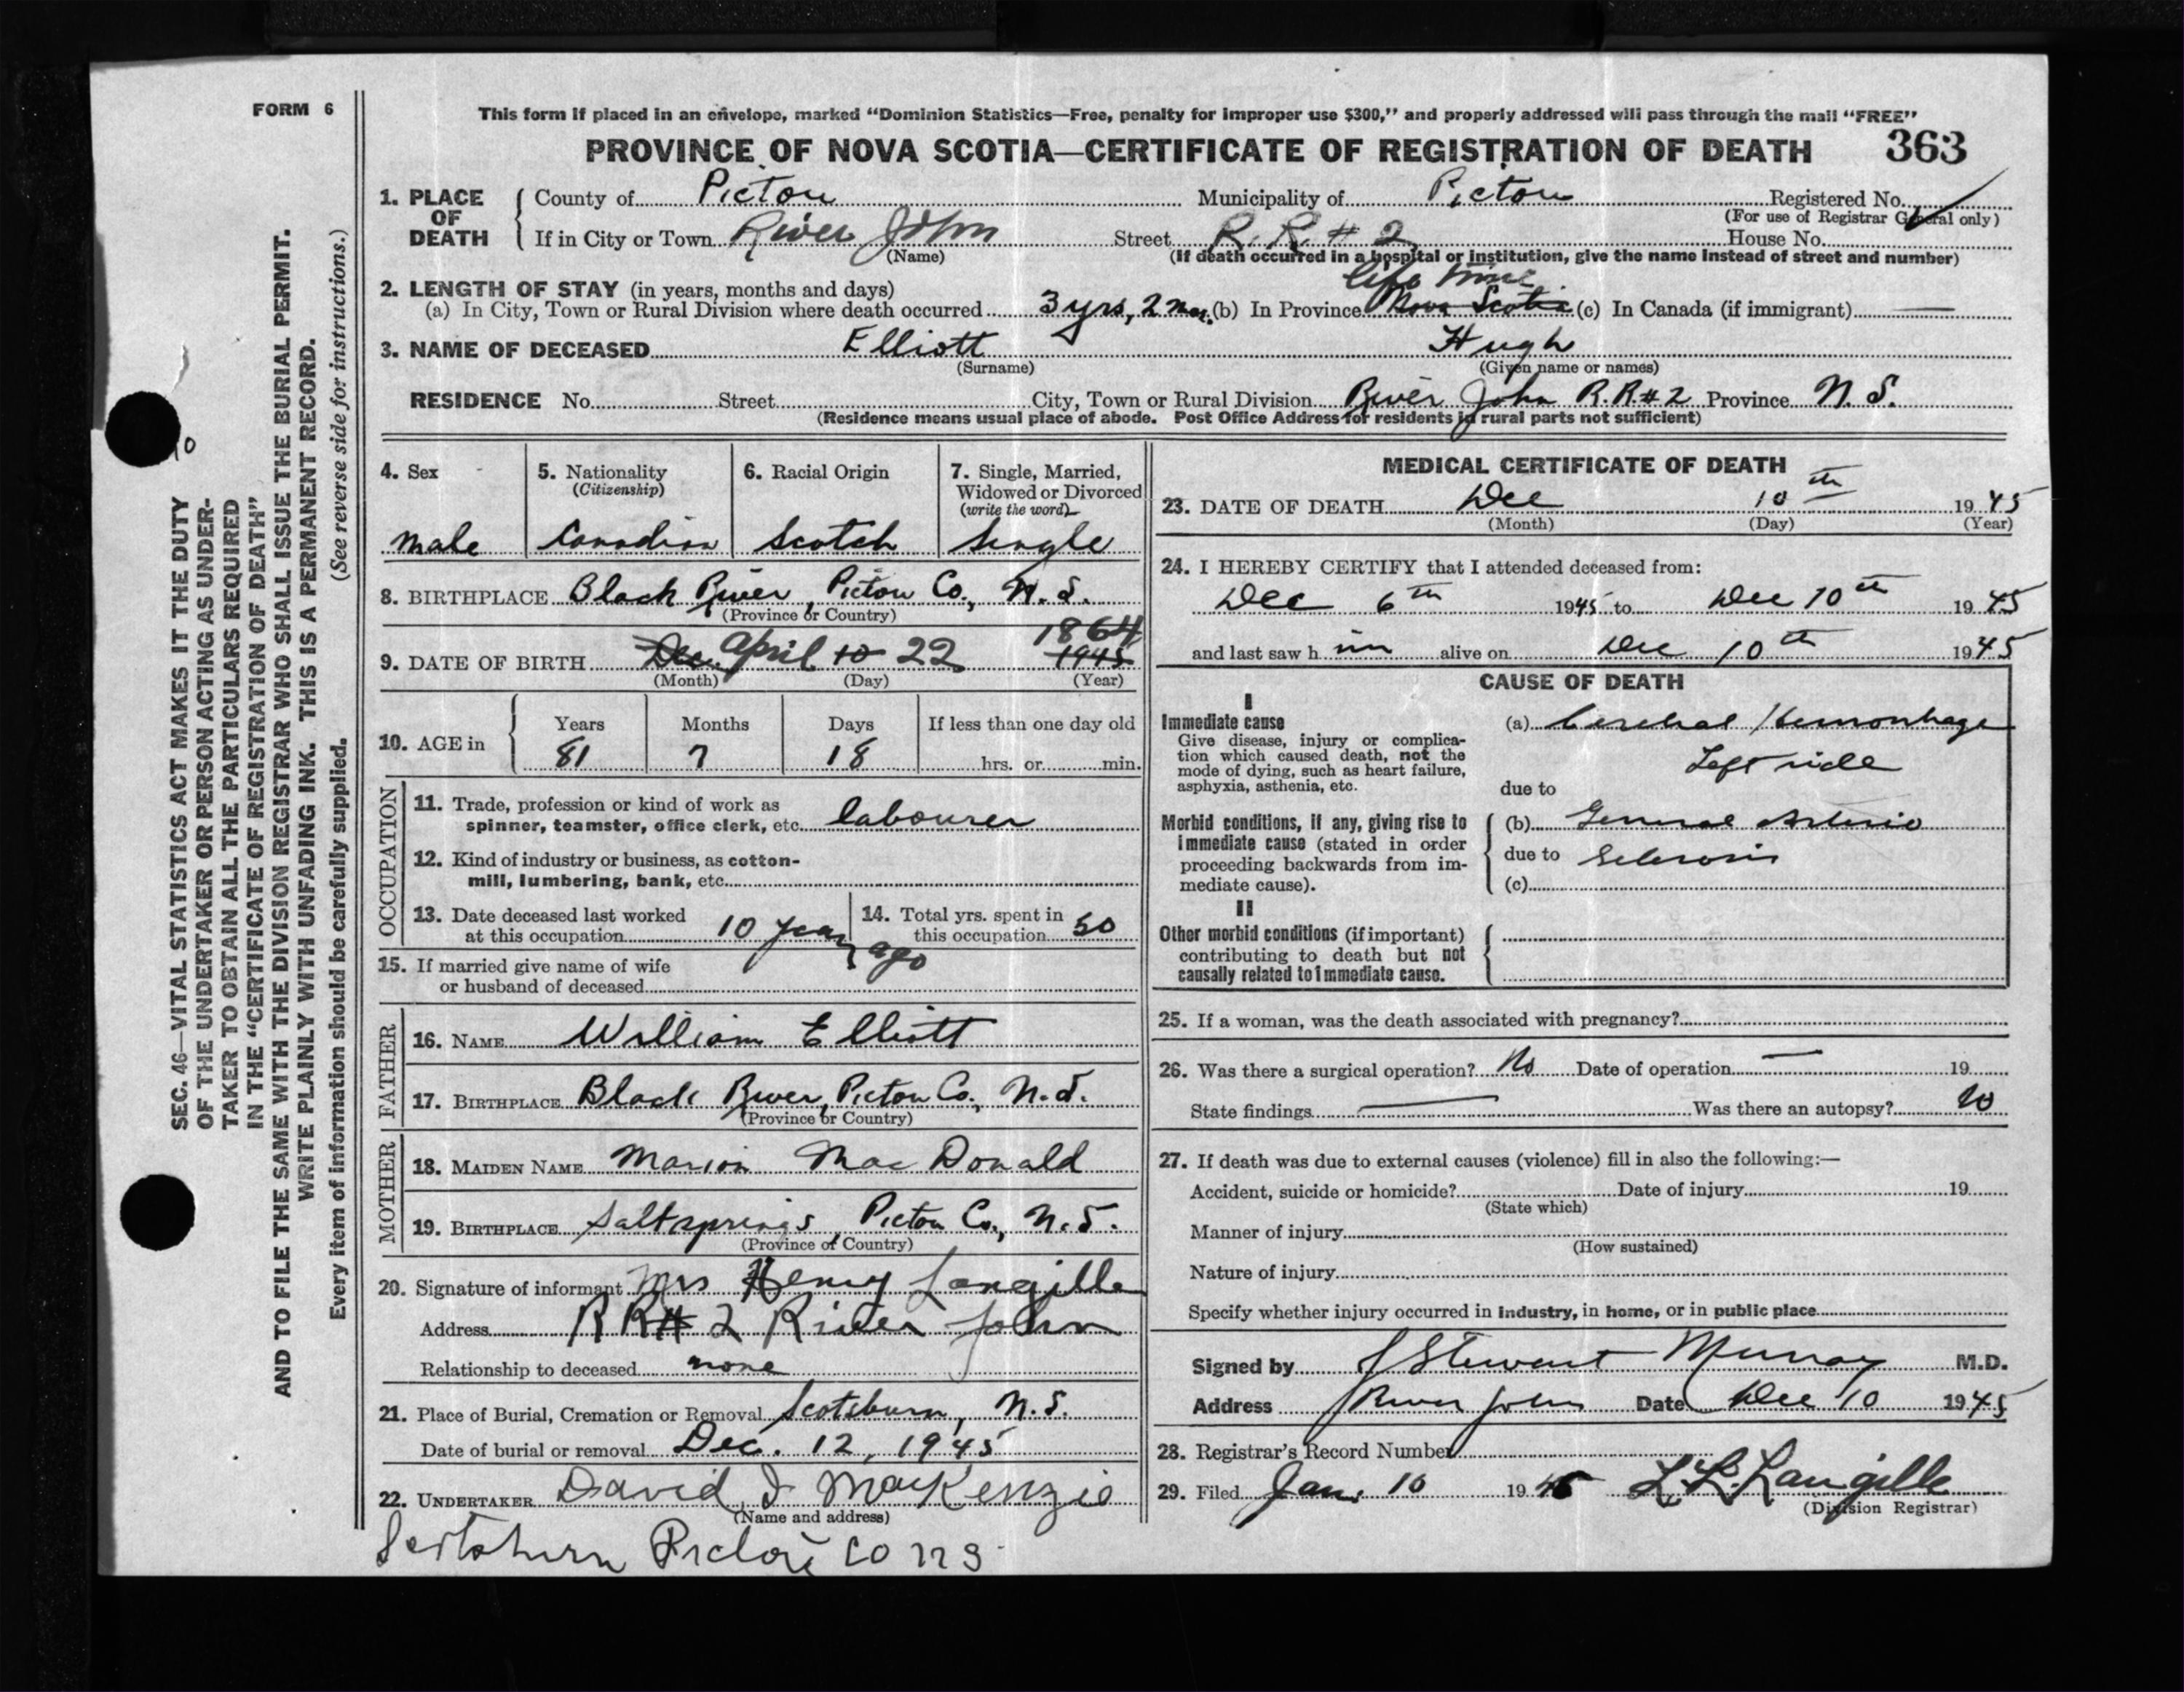 FORM 6
This form if placed in an envelope, marked "Dominion Statistics—Free, penalty for improper use $300," and properly addressed will pass through the mail "FREE"
PROVINCE OF NOVA SCOTIA—CERTIFICATE OF REGISTRATION OF DEATH 363
1. PLACE OF DEATH County of Pictou Municipality of Pictou Registered No.
(For use of Registrar General only)
If in City or Town River John Street R. R. # 2 House No.
(Name) (If death occurred in a hospital or institution, give the name instead of street and number)
2. LENGTH OF STAY (in years, months and days) life time
(a) In City, Town or Rural Division where death occurred 3 yrs, 2 mos. (b) In Province Nova Scotia (c) In Canada (if immigrant) —
3. NAME OF DECEASED Elliott Hugh
(Surname) (Given name or names)
RESIDENCE No. Street City, Town or Rural Division River John R.R.#2 Province N. S.
(Residence means usual place of abode. Post Office Address for residents in rural parts not sufficient)
4. Sex male
5. Nationality (Citizenship) Canadian
6. Racial Origin Scotch
7. Single, Married, Widowed or Divorced (write the word) Single
8. BIRTHPLACE Black River, Pictou Co., N. S.
(Province or Country)
1864
9. DATE OF BIRTH Dec. April 10 22 1945
(Month) (Day) (Year)
10. AGE in Years 81 Months 7 Days 18 If less than one day old hrs. or min.
OCCUPATION
11. Trade, profession or kind of work as
spinner, teamster, office clerk, etc. labourer
12. Kind of industry or business, as cotton-
mill, lumbering, bank, etc.
13. Date deceased last worked
at this occupation 10 years ago
14. Total yrs. spent in
this occupation 50
15. If married give name of wife
or husband of deceased
FATHER
16. NAME William Elliott
17. BIRTHPLACE Black River, Pictou Co., N.S.
(Province or Country)
MOTHER
18. MAIDEN NAME Marion MacDonald
19. BIRTHPLACE Saltsprings, Pictou Co., N.S.
(Province or Country)
20. Signature of informant Mrs Henry Langille
Address R R # 2 River John
Relationship to deceased none
21. Place of Burial, Cremation or Removal Scotsburn, N.S.
Date of burial or removal Dec. 12, 1945
22. UNDERTAKER David I MacKenzie
(Name and address)
Scotsburn Pictou Co NS
MEDICAL CERTIFICATE OF DEATH
23. DATE OF DEATH Dec 10th 1945
(Month) (Day) (Year)
24. I HEREBY CERTIFY that I attended deceased from:
Dec 6th 1945 to Dec 10th 1945
and last saw h im alive on Dec 10th 1945
CAUSE OF DEATH
I
Immediate cause
Give disease, injury or complica-
tion which caused death, not the
mode of dying, such as heart failure,
asphyxia, asthenia, etc.
(a) Cerebral Hemorrhage
Left side
due to
Morbid conditions, if any, giving rise to
immediate cause (stated in order
proceeding backwards from im-
mediate cause).
(b) General Arterio
due to Sclerosis
(c)
II
Other morbid conditions (if important)
contributing to death but not
causally related to immediate cause.
25. If a woman, was the death associated with pregnancy?
26. Was there a surgical operation? No Date of operation — 19
State findings — Was there an autopsy? No
27. If death was due to external causes (violence) fill in also the following:—
Accident, suicide or homicide? Date of injury 19
(State which)
Manner of injury
(How sustained)
Nature of injury
Specify whether injury occurred in industry, in home, or in public place
Signed by J Stewart Murray M.D.
Address River John Date Dec 10 1945
28. Registrar's Record Number
29. Filed Jan. 10 19 L. L. Langille
(Division Registrar)
SEC. 46—VITAL STATISTICS ACT MAKES IT THE DUTY
OF THE UNDERTAKER OR PERSON ACTING AS UNDER-
TAKER TO OBTAIN ALL THE PARTICULARS REQUIRED
IN THE "CERTIFICATE OF REGISTRATION OF DEATH"
AND TO FILE THE SAME WITH THE DIVISION REGISTRAR WHO SHALL ISSUE THE BURIAL PERMIT.
WRITE PLAINLY WITH UNFADING INK. THIS IS A PERMANENT RECORD.
Every item of information should be carefully supplied. (See reverse side for instructions.)